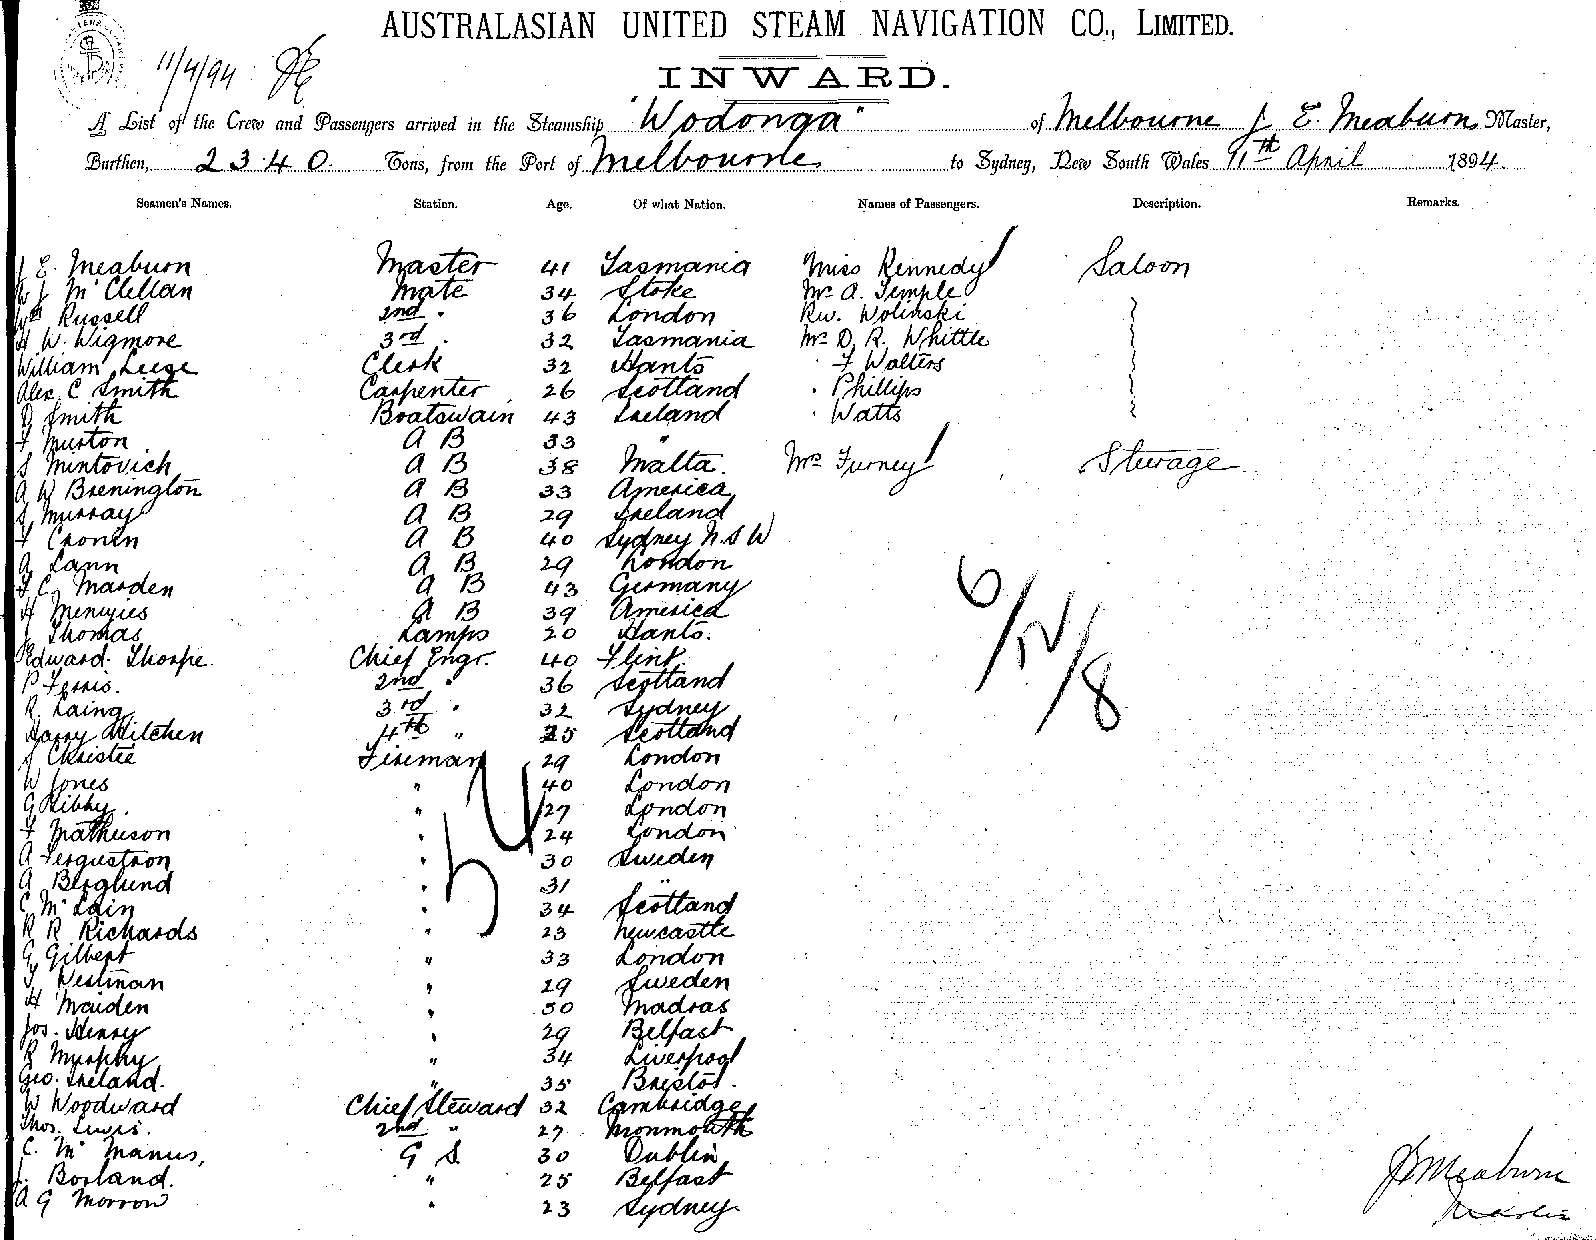 AUSTRALASIAN UNITED STEAM NAVIGATION CO., LIMITED.
11/4/94
INWARD.
A List of the Crew and Passengers arrived in the Steamship "Wodonga" of Melbourne J E. Meaburn Master,
Burthen, 2340. Tons, from the Port of Melbourne to Sydney, New South Wales 11th April 1894.
Seamen's Names. Station. Age. Of what Nation. Names of Passengers. Description. Remarks.
J E. Meaburn Master 41 Tasmania Miss Kennedy Saloon
J McClellan Mate 34 Stoke Mr A. Temple
Wm Russell 2nd " 36 London Rev. Wolinski
H W. Wigmore 3rd " 32 Tasmania Mr D. R. Whittle
William Leege Clerk 32 Hants " F Walters
Alex C Smith Carpenter 26 Scotland " Phillips
D Smith Boatswain 43 Ireland " Watts
F Murton A B 33 "
S Mintovich A B 38 Malta. Mrs Furney Steerage
A W Brenington A B 33 America
S Murray A B 29 Ireland
F Cronin A B 40 Sydney N.S.W
A Lann A B 29 London
F C. Marden A B 43 Germany
H Menzies A B 39 America
J Thomas Lamps 20 Hants.
Edward Thorpe. Chief Engr. 40 Flint
P Ferris. 2nd " 36 Scotland
R Laing 3rd " 32 Sydney
Harry Hitchen 4th " 25 Scotland
J Christie Fireman 29 London
W Jones " 40 London
G Libby " 27 London
F Mathieson " 24 London
A Fergustron " 30 Sweden
A Berglund " 31 "
C McLain " 34 Scotland
R R Richards " 23 Newcastle
G Gilbert " 33 London
F Westman " 29 Sweden
H Maiden " 50 Madras
Jos. Henry " 29 Belfast
R Murphy " 34 Liverpool
Geo. Ireland. " 35 Bristol.
W Woodward Chief Steward 32 Cambridge
Thos. Lewis. 2nd " 27 Monmouth
C. McManus, G S 30 Dublin
J. Borland. " 25 Belfast
A G Morrow " 23 Sydney
54
6/2/8
J E Meaburn
Master